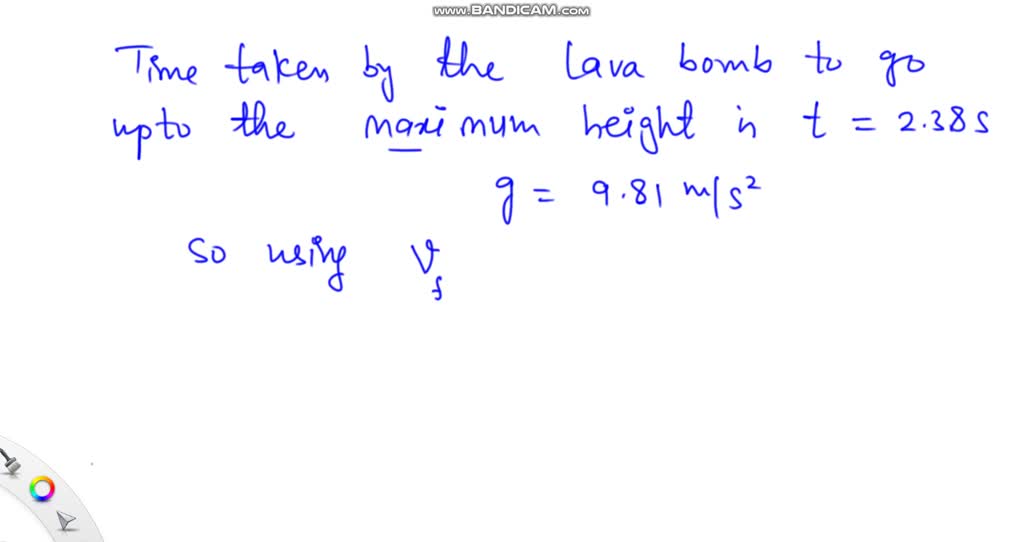 www.BANDICAM.com
Time taken by the lava bomb to go
upto the maximum height is t = 2.38s
g = 9.81 m/s²
So using Vf